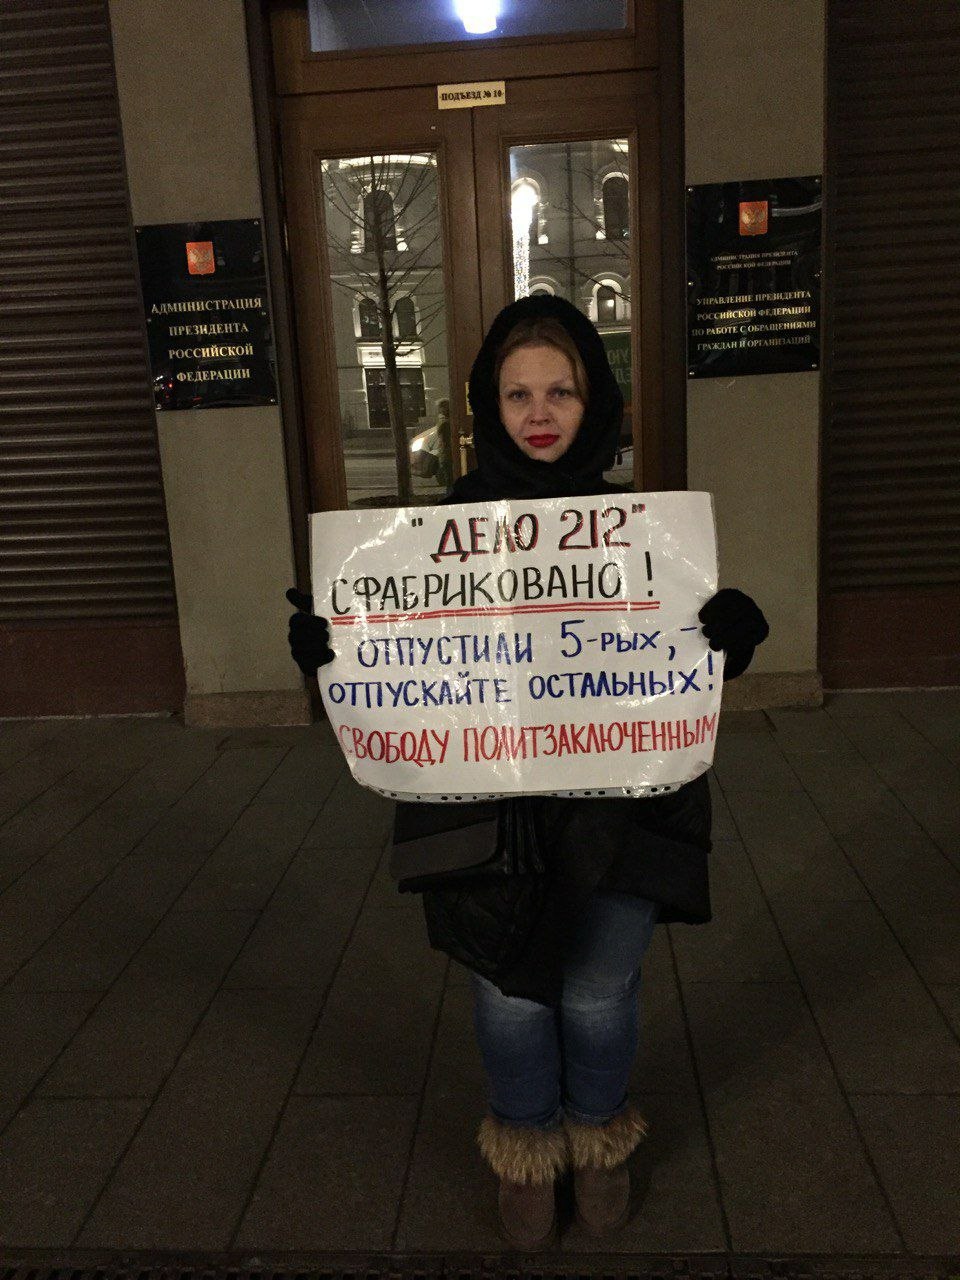 ПОДЪЕЗД № 10
АДМИНИСТРАЦИЯ
ПРЕЗИДЕНТА
РОССИЙСКОЙ
ФЕДЕРАЦИИ
АДМИНИСТРАЦИЯ ПРЕЗИДЕНТА
РОССИЙСКОЙ ФЕДЕРАЦИИ
УПРАВЛЕНИЕ ПРЕЗИДЕНТА
РОССИЙСКОЙ ФЕДЕРАЦИИ
ПО РАБОТЕ С ОБРАЩЕНИЯМИ
ГРАЖДАН И ОРГАНИЗАЦИЙ
"ДЕЛО 212"
СФАБРИКОВАНО!
ОТПУСТИЛИ 5-РЫХ, -
ОТПУСКАЙТЕ ОСТАЛЬНЫХ!
СВОБОДУ ПОЛИТЗАКЛЮЧЕННЫМ